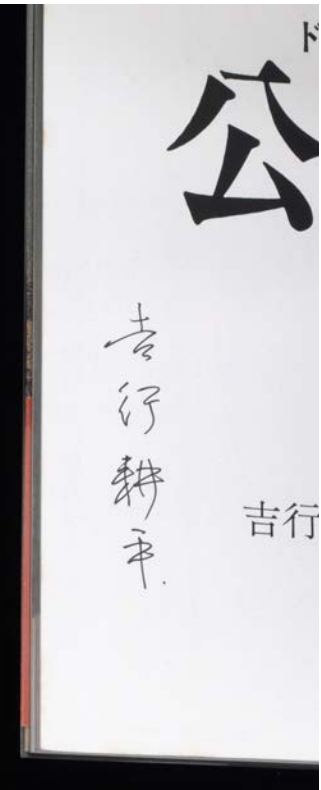 ド
公
吉行耕平.
吉行